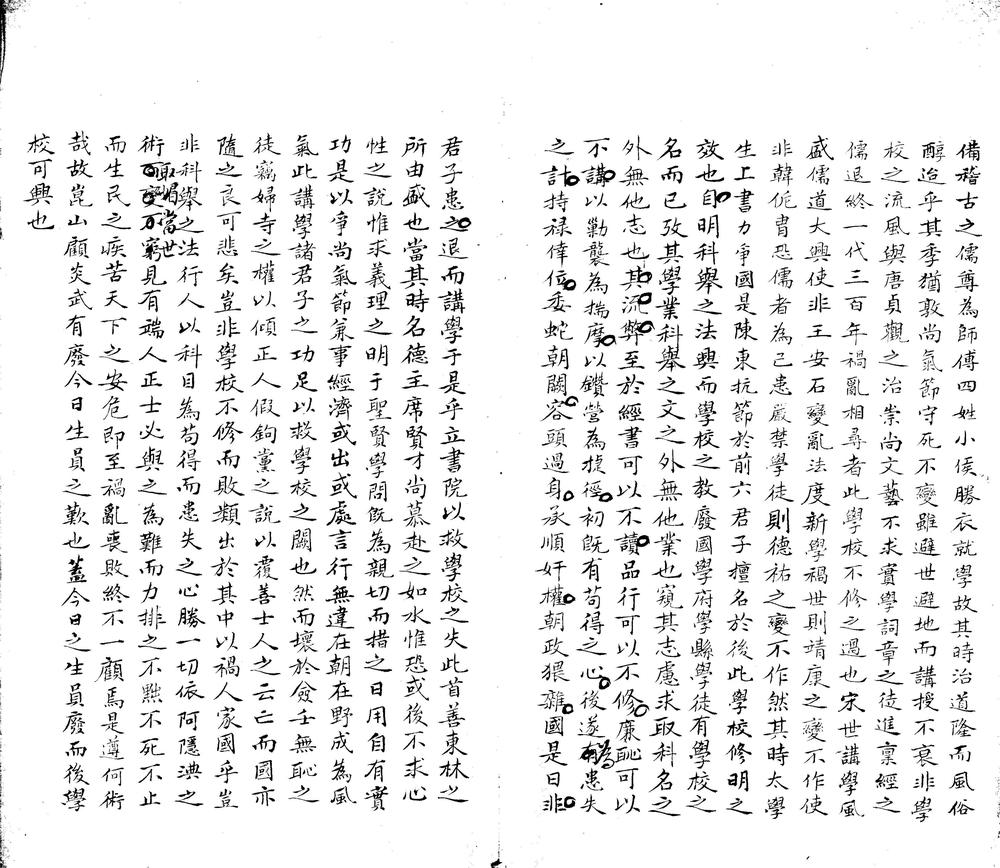 備稽古之儒尊為師傅四姓小侯勝衣就學故其時治道隆而風俗
醇迨乎其季猶敦尚氣節守死不變雖避世避地而講授不衰非學
校之流風與唐貞觀之治崇尚文藝不求實學詞章之徒進稟經之
儒退終一代三百年禍亂相尋者此學校不修之過也宋世講學風
盛儒道大興使非王安石變亂法度新學禍世則靖康之變不作使
非韓侂冑恐儒者為己患嚴禁學徒則德祐之變不作然其時太學
生上書力爭國是陳東抗節於前六君子擅名於後此學校修明之
效也自明科舉之法興而學校之教廢國學府學縣學徒有學校之
名而已攷其學業科舉之文之外無他業也窺其志慮求取科名之
外無他志也其流弊至於經書可以不讀品行可以不修廉恥可以
不講以勦襲為揣摩以鑽營為捷徑初既有苟得之心後遂為患失
之計持祿倖位委蛇朝闕容頭過身承順奸權朝政猥雜國是日非
君子患之退而講學于是乎立書院以救學校之失此首善東林之
所由盛也當其時名德主席賢才尚慕赴之如水惟恐或後不求心
性之說惟求義理之明于聖賢學問既為親切而措之日用自有實
功是以爭尚氣節氣事經濟或出或處言行無違在朝在野成為風
氣此講學諸君子之功足以救學校之闕也然而壞於僉壬無恥之
徒竊婦寺之權以傾正人假鉤黨之說以覆善士人之云亡而國亦
隨之良可悲矣豈非學校不修而敗類出於其中以禍人家國乎豈
非科舉之法行人以科目為苟得而患失之心勝一切依阿隱淟之
術取媚當世見有端人正士必與之為難而力排之不黜不死不止
而生民之疾苦天下之安危即至禍亂喪敗終不一顧焉是遵何術
哉故崑山顧炎武有廢今日生員之歎也蓋今日之生員廢而後學
校可興也